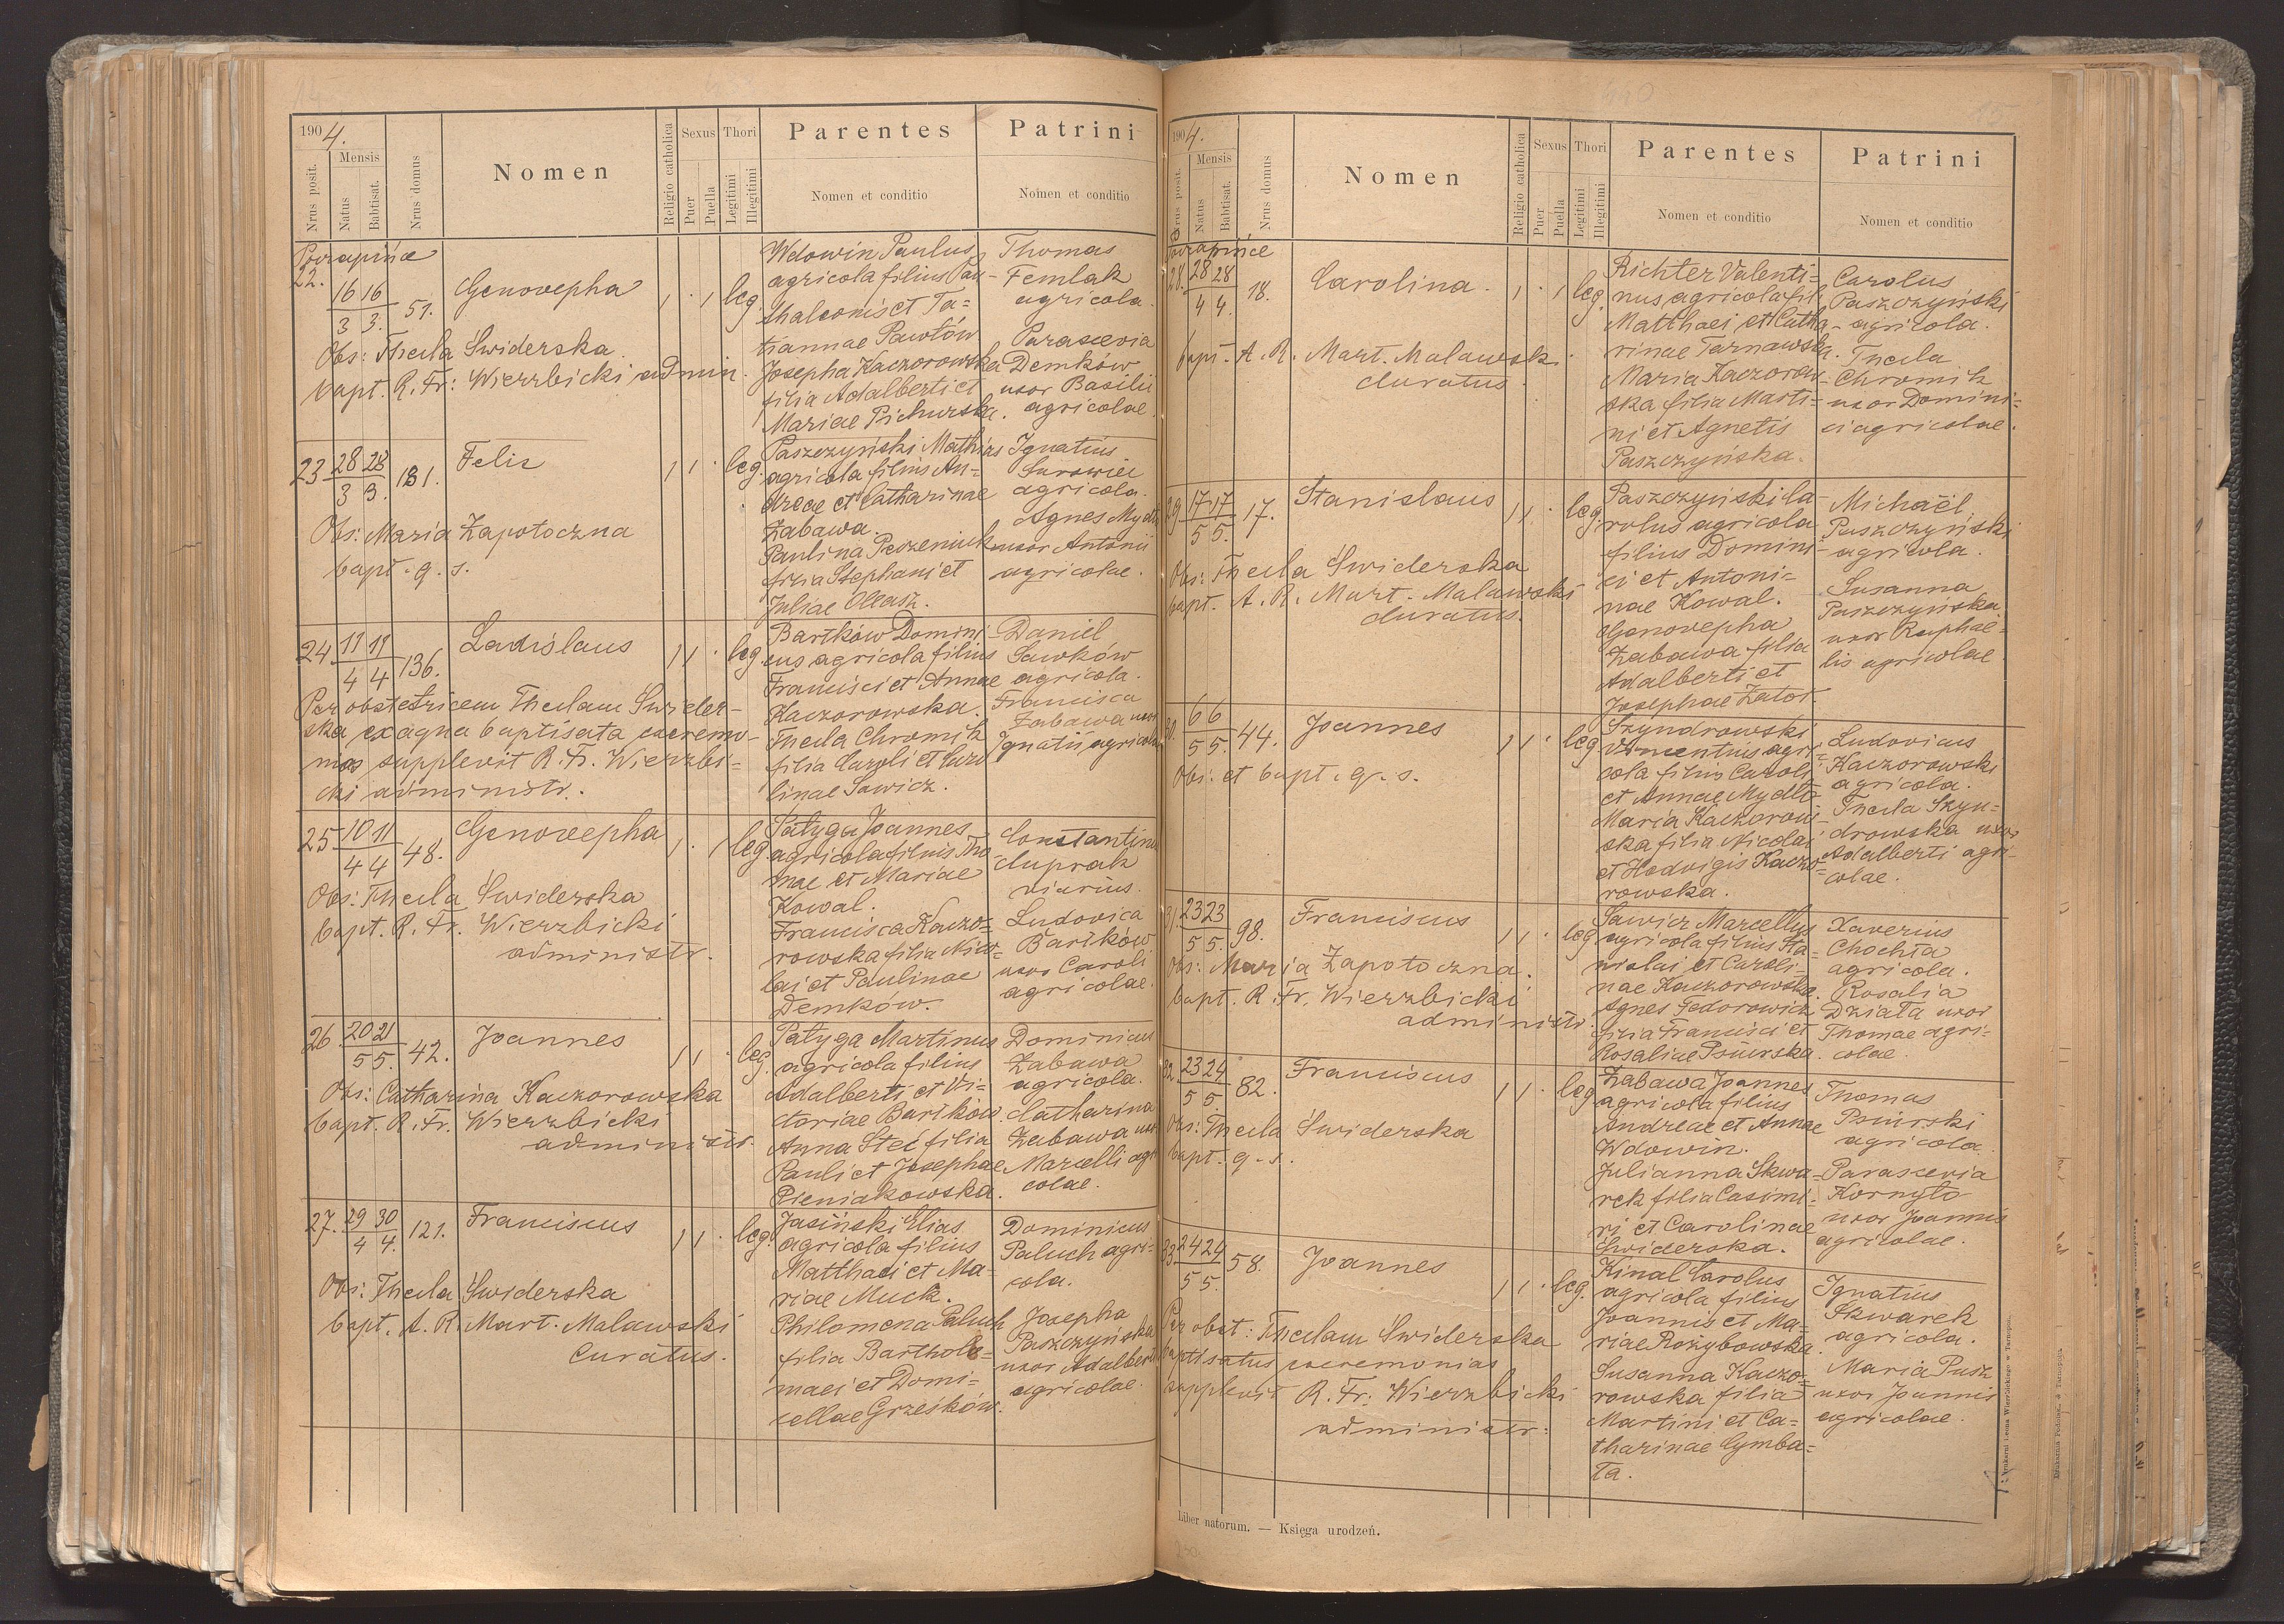 1904.
Nrus posit.
Mensis
Natus
Babtisat.
Nrus domus
Nomen
Religio catholica
Sexus
Puer
Puella
Thori
Legitimi
Illegitimi
Parentes
Nomen et conditio
Patrini
Nomen et conditio
22.
16 16
3 3.
51.
Genovepha
leg.
Obs: Thecla Świderska
bapt. R. Fr: Wierzbicki admin.
Wdowin Paulus
agricola filius Pan-
thaleonis et Ta=
tiannae Pawłów
Josepha Kaczorowska
filia Adalberti et
Mariae Pichurska.
Thomas
Femlak
agricola.
Parascevia
Demków
uxor Basilii
agricolae.
23
28 28
3 3.
181.
Felix
leg.
Obs: Maria Zapotoczna
bapt. q. s.
Paszczyński Mathias
agricola filius An=
dreae et Catharinae
Zabawa.
Paulina Peszeniuk
filia Stephani et
Juliae Oleasz.
Ignatius
Surowiec
agricola.
Agnes
uxor Antonii
agricolae.
24
11 11
4 4
136.
Ladislaus
leg.
Per obstetricem Theclam Świder-
ska ex aqua baptisata caeremo-
nias supplevit R. Fr. Wierzbi=
cki administr.
Bartków Domini-
cus agricola filius
Francisci et Annae
Kaczorowska.
Thecla Chromik
filia Caroli et Caro
linae Sawicz.
Daniel
Sawków
agricola.
Francisca
Zabawa uxor
Ignatii agricolae
25
10 11
4 4
48.
Genovepha
leg.
Obs: Thecla Świderska
bapt. R. Fr. Wierzbicki
administr.
Patyga Joannes
agricola filius Tho
mae et Mariae
Kowal.
Francisca Kaczo=
rowska filia Nico=
lai et Paulinae
Demków.
Constantinus
Cuprak
viarius.
Ludovica
Bartków
uxor Caroli
agricolae.
26
20 21
5 5.
42.
Joannes
leg.
Obs: Catharina Kaczorowska
bapt. R. Fr. Wierzbicki
administr.
Patyga Martinus
agricola filius
Adalberti et Vi=
ctoriae Bartków.
Anna Steć filia
Pauli et Josephae
Pieniakowska.
Dominicus
Zabawa
agricola.
Catharina
Zabawa uxor
Marcelli agri
colae.
27.
29 30
4 4.
121.
Franciscus
leg.
Obs: Thecla Świderska
bapt. A. R. Mart. Malawski
Curatus.
Jasiński Elias
agricola filius
Matthaei et Ma-
riae Muck.
Philomena Paluch
filia Bartholo=
maei et Domi=
cellae Grześków.
Dominicus
Paluch agri-
cola.
Josepha
Paszczyńska
uxor Adalberti
agricolae.
1904.
Nrus posit.
Mensis
Natus
Babtisat.
Nrus domus
Nomen
Religio catholica
Sexus
Puer
Puella
Thori
Legitimi
Illegitimi
Parentes
Nomen et conditio
Patrini
Nomen et conditio
28.
28 28
4 4
18.
Carolina.
leg.
bapt. A. R. Mart. Malawski
Curatus.
Richter Valenti-
nus agricola fil
Matthaei et Catha-
rinae Tarnawska.
Maria Kaczorow-
ska filia Marti=
ni et Agnetis
Paszczyńska.
Carolus
Paszczyński
agricola.
Thecla
Chromik
uxor Domini=
ci agricolae.
29
17 17
5 5.
17.
Stanislaus
leg.
Obs: Thecla Świderska
bapt. A. R. Mart. Malawski
Curatus.
Paszczyński Ca-
rolus agricola
filius Domini-
ci et Antoni=
nae Kowal.
Genovepha
Zabawa filia
Adalberti et
Josephae Zator.
Michaël
Paszczyński
agricola.
Susanna
Paszczyńska
uxor Raphae-
lis agricolae
30.
6 6
5 5.
44.
Joannes
leg.
Obs: et bapt. q. s.
Szyndrowski
Vincentius agri=
cola filius Caroli
et Annae Mydło
Maria Kaczorow-
ska filia Nicolai
et Hedvigis Kaczo=
rowska.
Ludovicus
Kaczorowski
agricola.
Thecla Szyn=
drowska uxor
Adalberti agri-
colae.
31.
23 23
5 5.
98.
Franciscus
leg.
Obs: Maria Zapotoczna.
bapt. R. Fr. Wierzbicki
administr.
Sawicz Marcellus
agricola filius Sta=
nislai et Caroli=
nae Kaczorowska.
Agnes Fedorowicz
filia Francisci et
Rosaliae Psiurska.
Xaverius
Chochła
agricola.
Rosalia
Działa uxor
Thomae agri-
colae.
32
23 24
5 5
82.
Franciscus
leg
Obs: Thecla Świderska
bapt. q. s.
Zabawa Joannes
agricola filius
Andreae et Annae
Wdowin.
Julianna Skwa-
rek filia Casimi-
ri et Carolinae
Świderska.
Thomas
Psiurski
agricola.
Parascevia
Kornyło
uxor Joannis
agricolae.
33
24 24
5 5.
58.
Joannes
leg.
Per obst: Theclam Świderska
baptisatus caeremonias
supplevit R. Fr. Wierzbicki
administr.
Kinal Carolus
agricola filius
Joannis et Ma=
riae Rożybowska.
Susanna Kaczo=
rowska filia
Martini et Ca=
tharinae Cymba=
ła.
Ignatius
Skwarek
agricola.
Maria Pusz
uxor Joannis
agricolae.
Liber natorum. — Księga urodzeń.